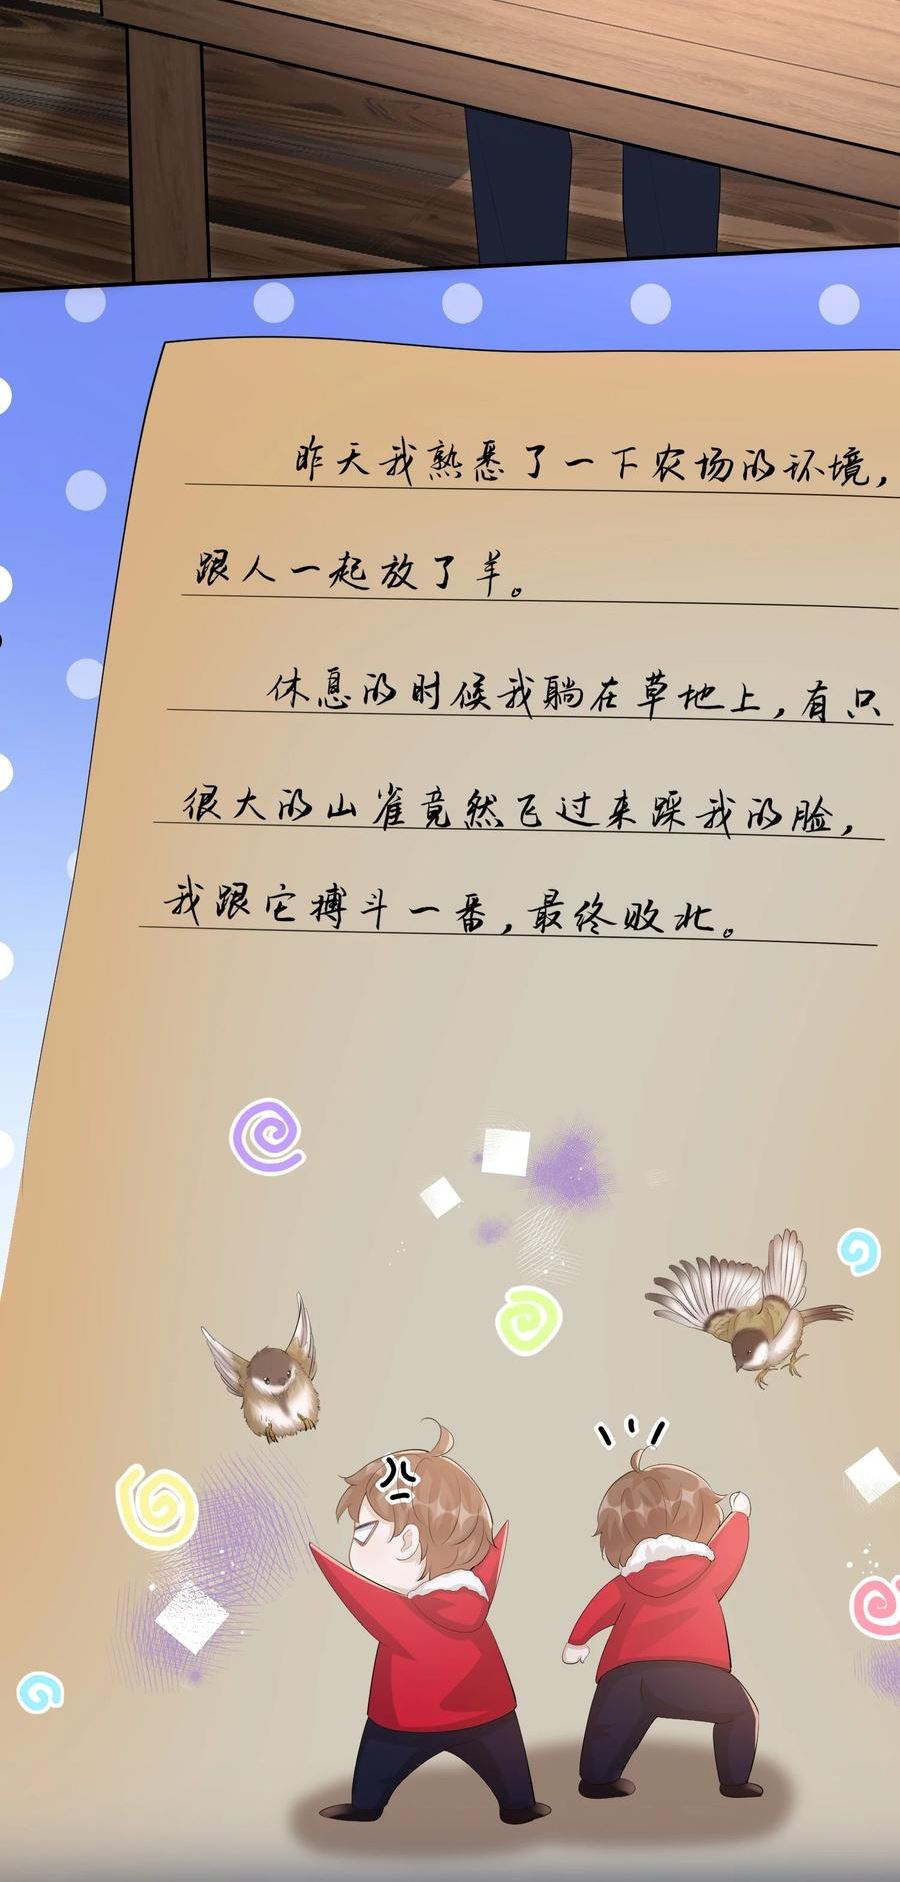 昨天我熟悉了一下农场的环境，
跟人一起放了羊。
休息的时候我躺在草地上，有只
很大的山雀竟然飞过来踩我的脸，
我跟它搏斗一番，最终败北。